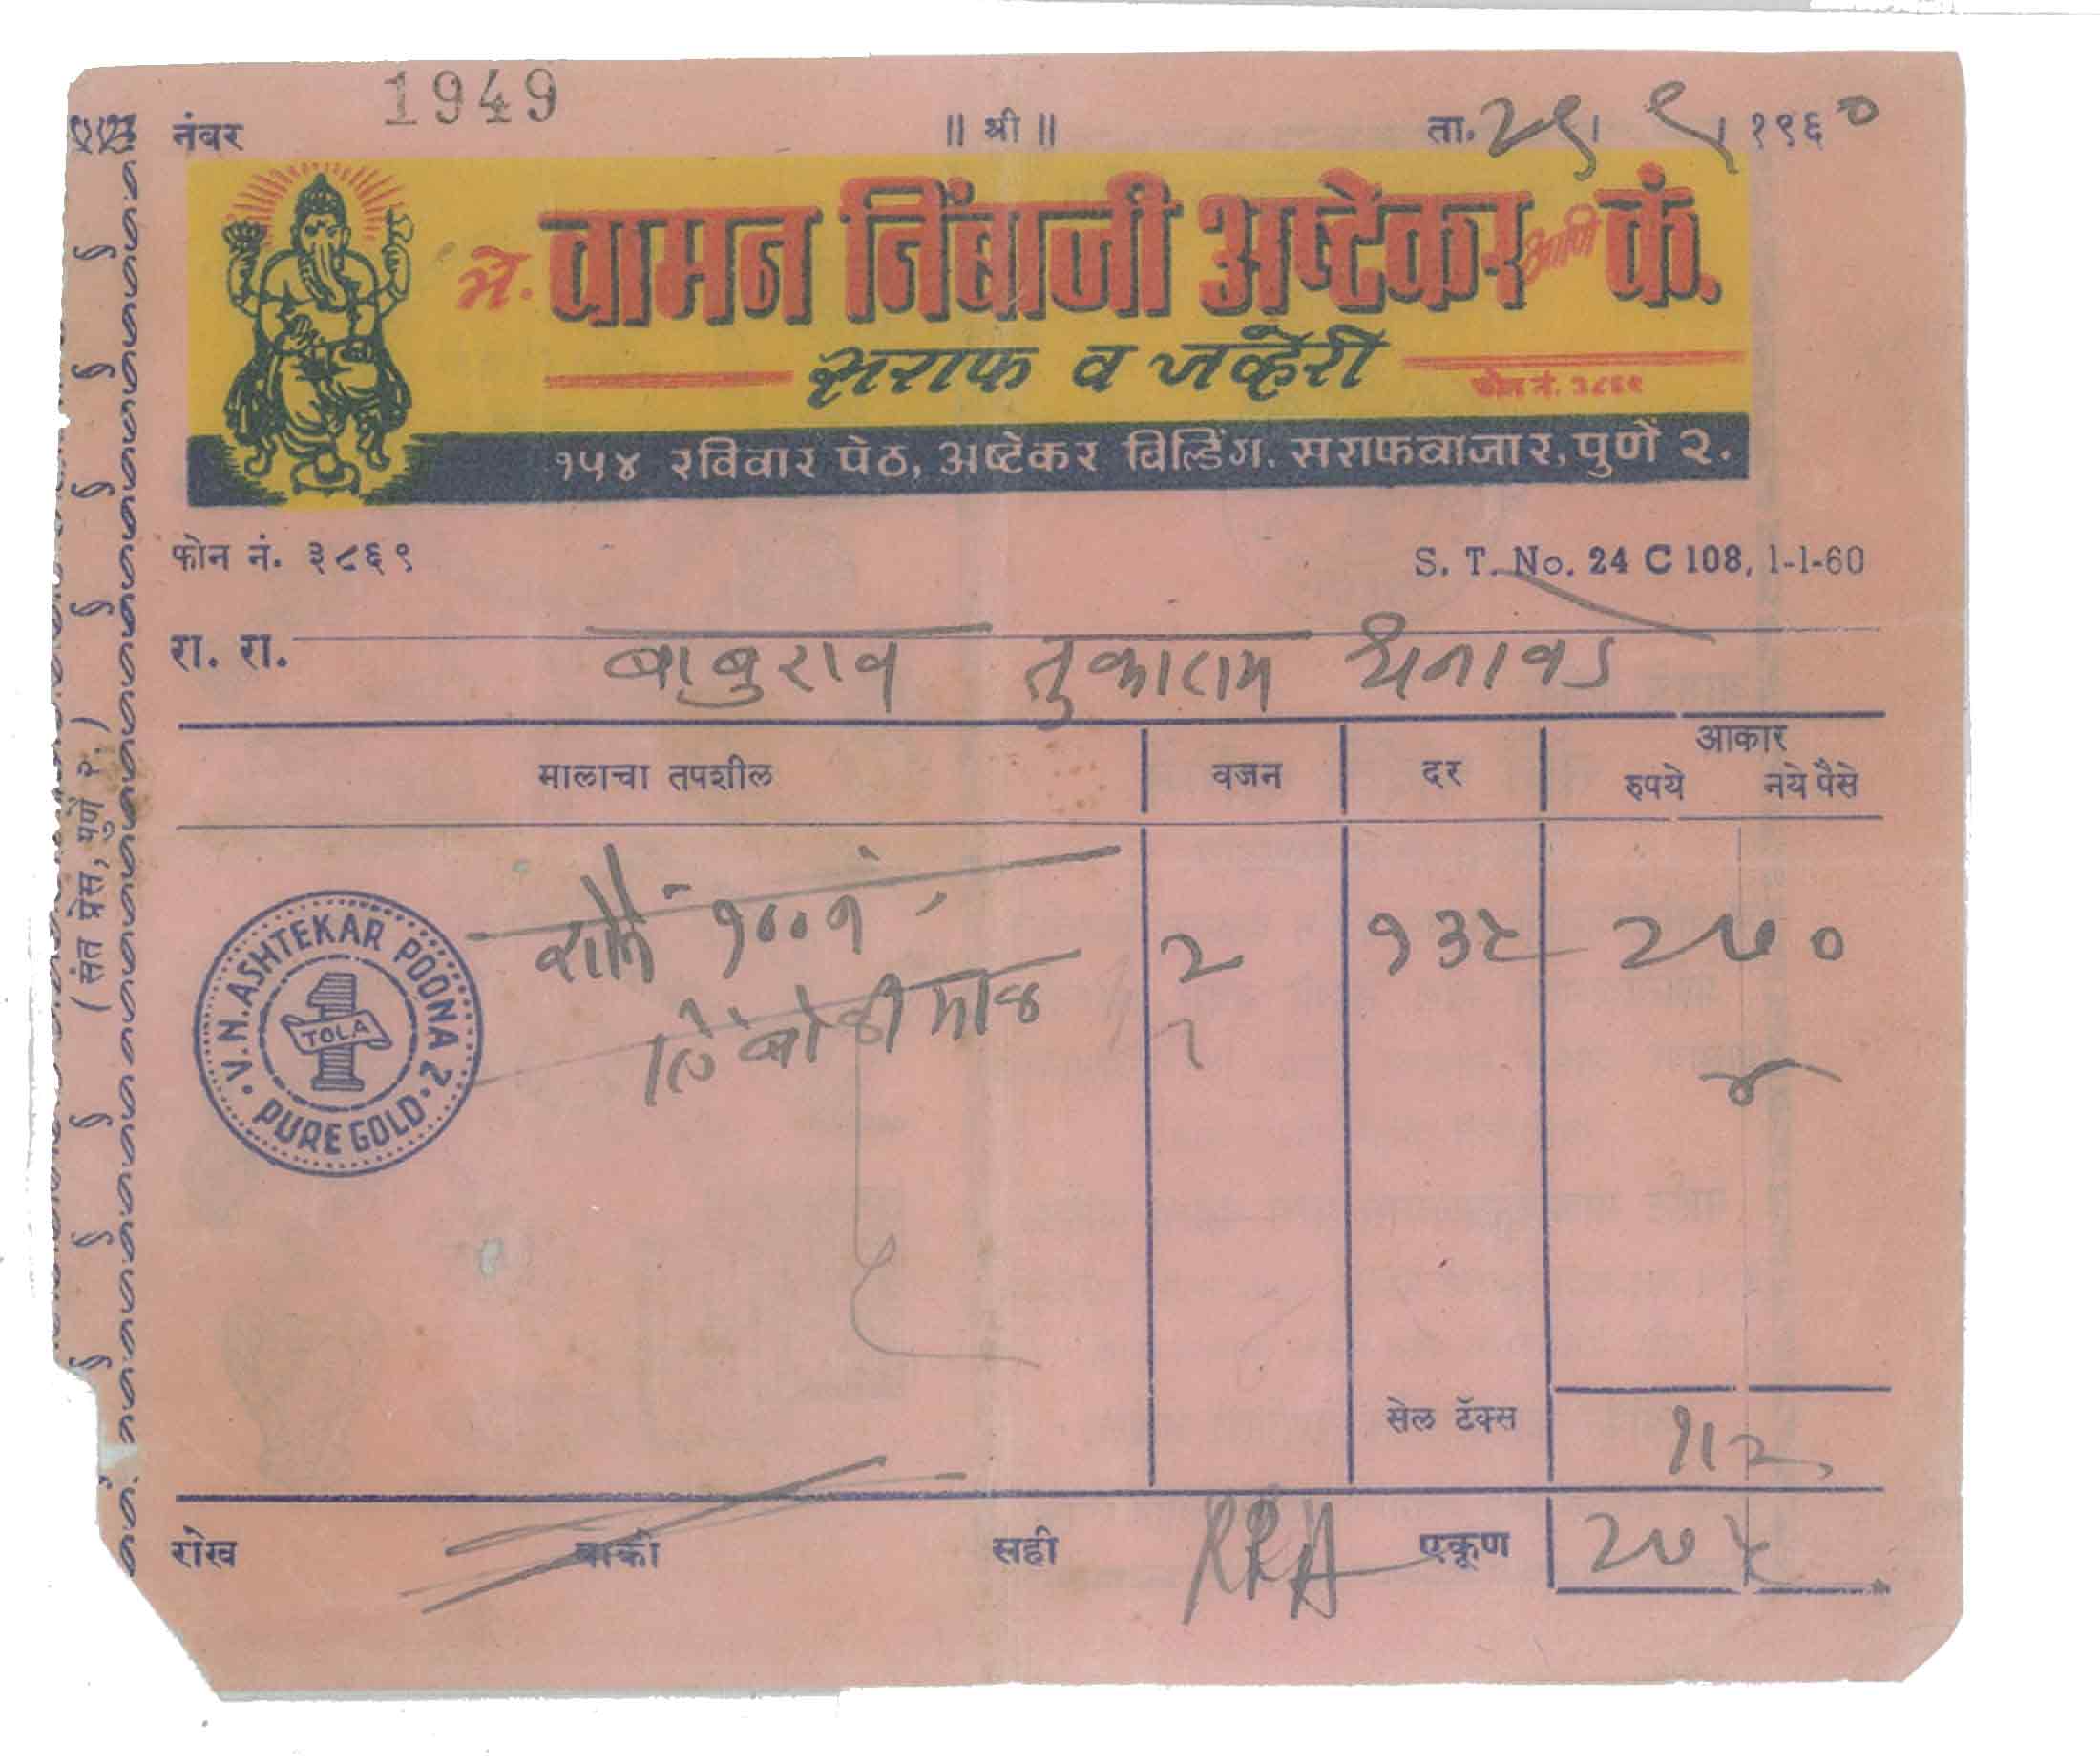 नंबर 1949 ॥ श्री ॥ ता. २९। ९। १९६०
मे. वामन निंबाजी अष्टेकर आणि कं.
सराफ व जव्हेरी
फोन नं. ३८६९
१५४ रविवार पेठ, अष्टेकर बिल्डिंग. सराफबाजार, पुणें २.
फोन नं. ३८६९ S. T. No. 24 C 108, 1-1-60
रा. रा. बाबुराव तुकाराम धनावडे
मालाचा तपशील वजन दर आकार
रुपये नये पैसे
१००१ २ १३५ २७०
४
V. N. ASHTEKAR POONA 2
1
TOLA
PURE GOLD
सेल टॅक्स १।२
रोख बाकी सही एकूण २७५
(संत प्रेस, पुणें २.)